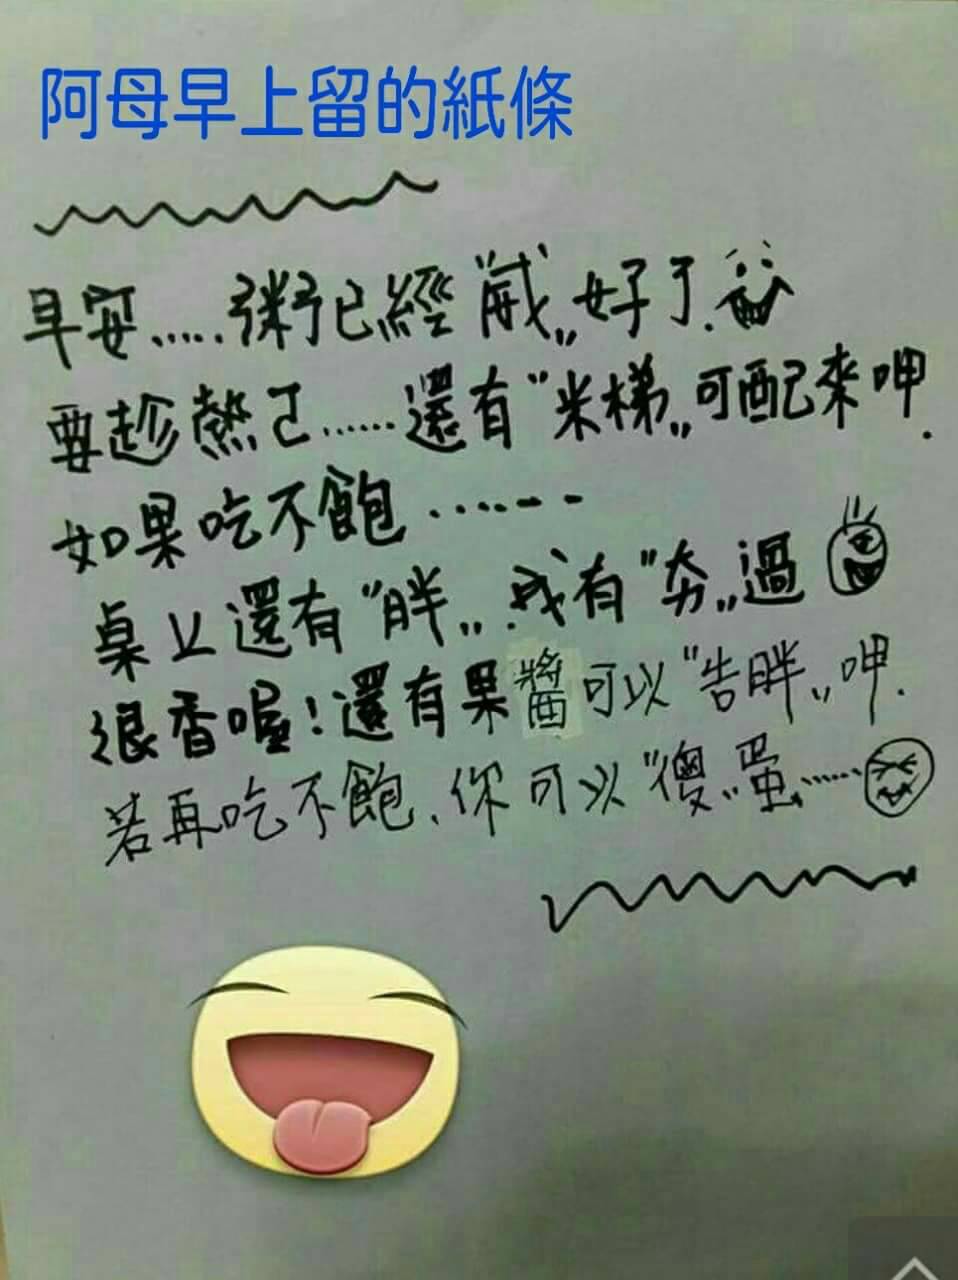 阿母早上留的紙條
早安.....粥已經"威"好了.
要趁熱ㄛ......還有"米梯"可配來呷.
如果吃不飽......
桌上還有"胖".我有"夯"過
很香喔!還有果醬可以"告胖"呷.
若再吃不飽、你可以"傻"蛋......